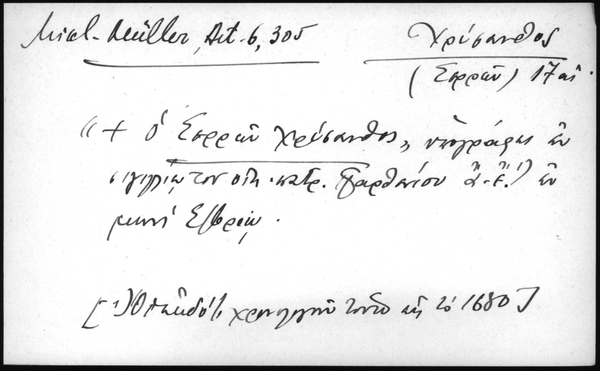 Mikl-Müller, Act. 6, 305
Χρύσανθος
(Σερρῶν) 17 αἰ.
"+ ὁ Σερρῶν Χρύσανθος", ὑπογράφει ἐν
σιγιλλίῳ του οἰκ. πατρ. Παρθενίου Α΄-Δ΄.¹) ἐν
μηνί
[¹) Ὁ ἐκδότης χρονολογεῖ τοῦτο εἰς τὸ 1680]